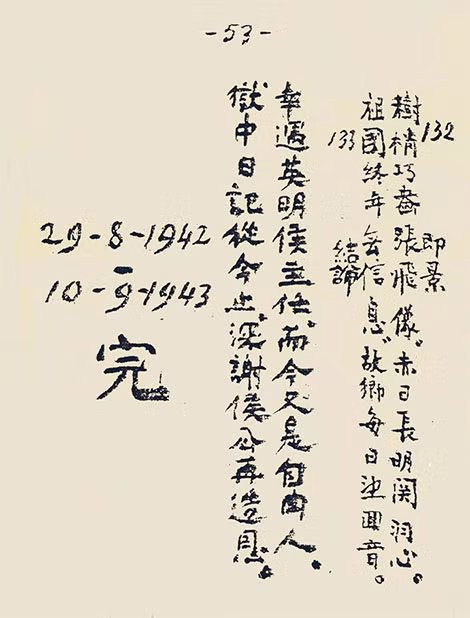 -53-
132
即景
樹梢巧畫張飛像。赤日長明関羽心。
祖國終年無信息、故鄉每日望囬音。
133
結論
幸遇英明侯主任、而今又是自由人。
獄中日記從今止、深謝侯公再造恩。
29-8-1942
-
10-9-1943
完